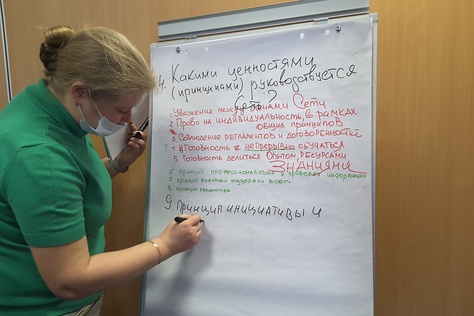 4. Какими ценностями
(принципами) руководствуется
Сеть?
1. Уважение между членами Сети
2. Право на индивидуальность, в рамках
общих принципов
3 Соблюдение регламентов и договоренностей
4 Готовность непрерывно обучаться
5 Готовность делиться Опытом, ресурсами
ЗНАНИЯМИ
6 принцип профессионализма и информации
7 поддержки
8 принцип
9 Принцип инициативы и